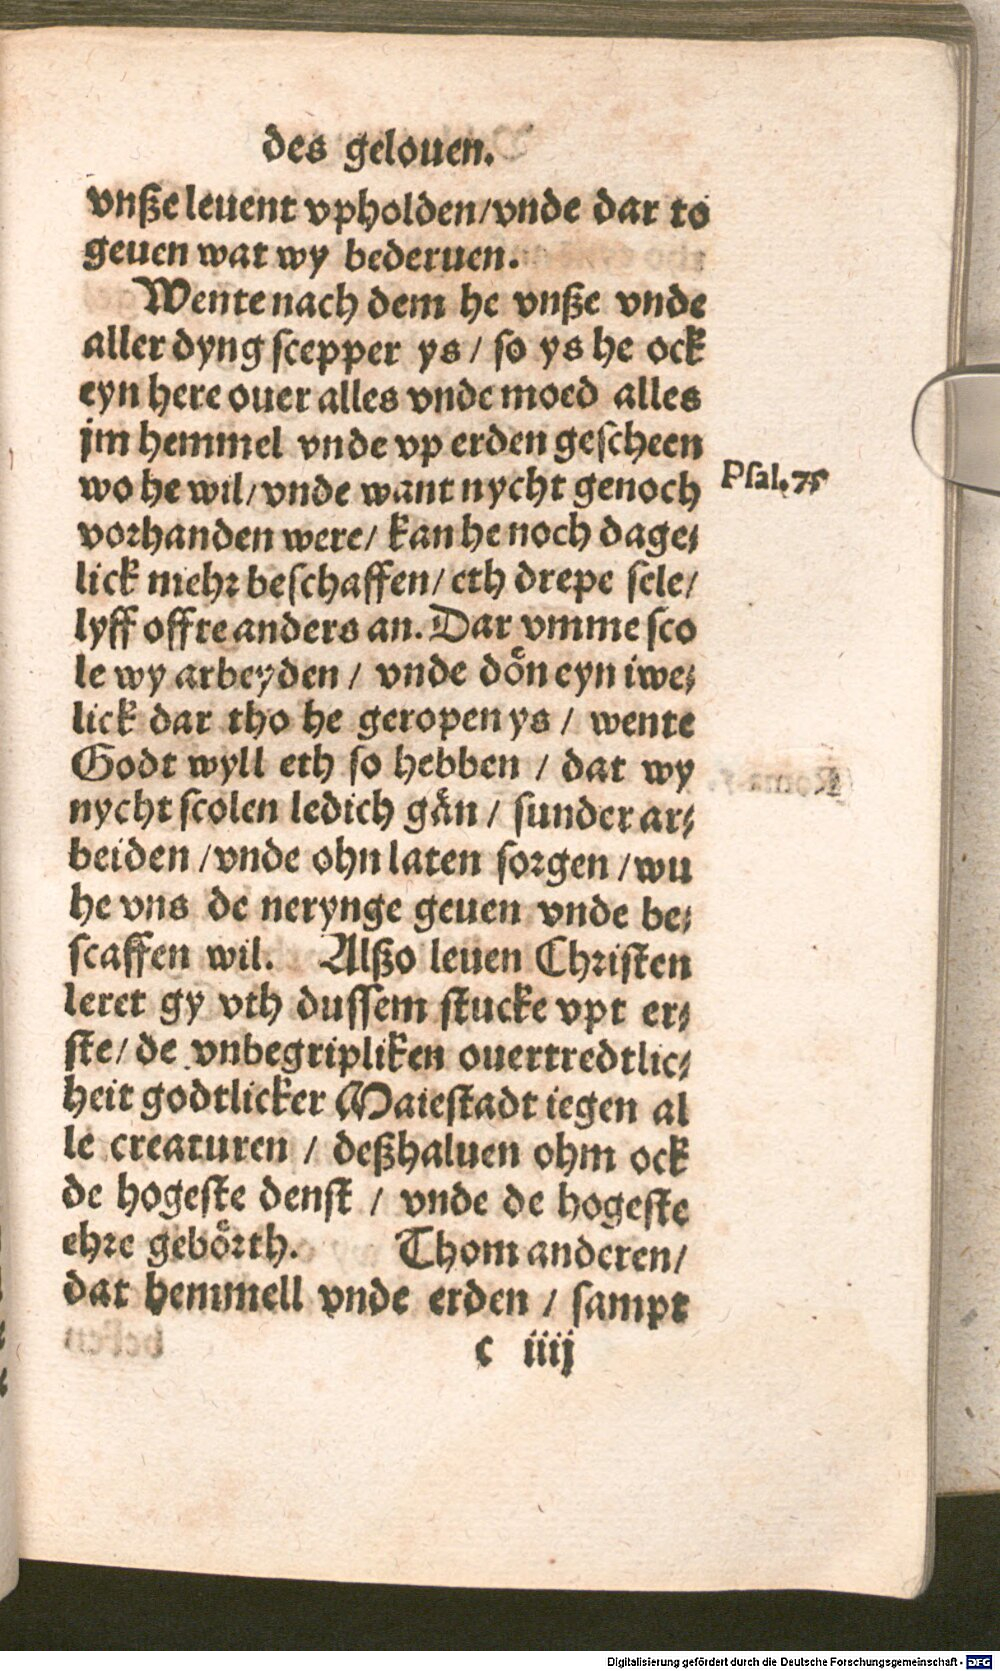 des gelouen.
vnße leuent vpholden/vnde dar to
geuen wat wy bederuen.
Wente nach dem he vnße vnde
aller dyng scepper ys / so ys he ock
eyn here ouer alles vnde moed alles
jm hemmel vnde vp erden gescheen
wo he wil/vnde want nycht genoch
Psal.75
vorhanden were/ kan he noch dage⸗
lick mehr beschaffen/eth drepe sele/
lyff offre anders an. Dar vmme sco
le wy arbeyden / vnde doͤn eyn iwe⸗
lick dar tho he geropen ys / wente
Godt wyll eth so hebben / dat wy
nycht scolen ledich gaͤn / sunder ar⸗
beiden /vnde ohn laten sorgen /wu
he vns de nerynge geuen vnde be⸗
scaffen wil. Alßo leuen Christen
leret gy vth dussem stucke vpt er⸗
ste/ de vnbegripliken ouertredtlic⸗
heit godtlicker Maiestadt iegen al
le creaturen / deßhaluen ohm ock
de hogeste denst / vnde de hogeste
ehre geboͤrth. Thom anderen/
dat hemmell vnde erden / sampt
c iiij
Digitalisierung gefördert durch die Deutsche Forschungsgemeinschaft - DFG